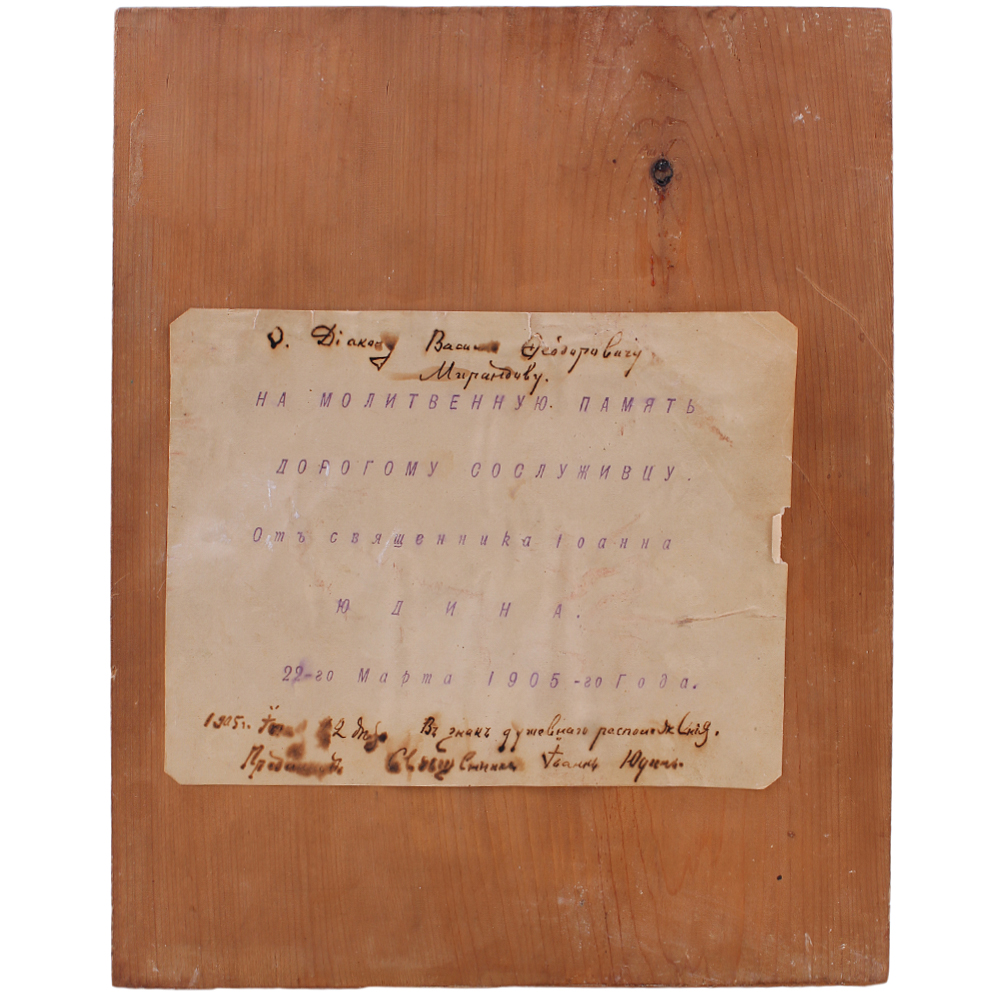 О. Діакону Василію Ѳеодоровичу
Мирантову.
НА МОЛИТВЕННУЮ ПАМЯТЬ
ДОРОГОМУ СОСЛУЖИВЦУ.
Отъ священника Іоанна
ЮДИНА.
22-го Марта 1905-го Года.
1905 г. 22 Въ знакъ душевнаго расположенія.
Священникъ Іоаннъ Юдинъ.